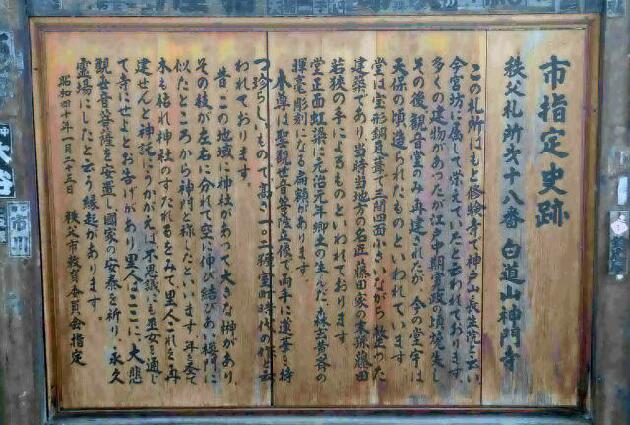 市指定史跡
秩父札所第十八番 白道山神門寺
この札所はもと修験寺で神戸山長生院と云い
今宮坊に属して栄えていたと云われております。
多くの建物があったが江戸中期寛政の頃焼失し
その後観音堂のみ再建されたが、今の堂宇は
天保の頃造られたものといわれています。
堂は宝形銅瓦葺で三間四面小さいながら整った
建築であり当時当地方の名匠藤田家の末孫藤田
若狭の手によるものといわれております
堂正面虹梁に元治元年郷土の生んだ、森玄黄斎の
揮毫彫刻になる扁額があります。
本尊は聖観世音菩薩立像で両手に蓮華を持
つ珍らしいもので、高さ一〇二糎室町時代の作と云
われております。
昔この地域に神社があって大きな榊があり、
その枝が左右に分れて空に伸び結びあい楼門に
似たところから神門と称したといいます。年を委て
木も枯れ神社のすたれるをみて里人これを再
建せんと神託にうかがえば不思議にも巫女を通じ
て寺にせよとお告げがあり、里人はここに、大悲
観世音菩薩を安置し國家の安泰を祈り、永久
霊場にしたと云う縁起があります。
昭和四十年一月二十五日 秩父市教育委員会指定